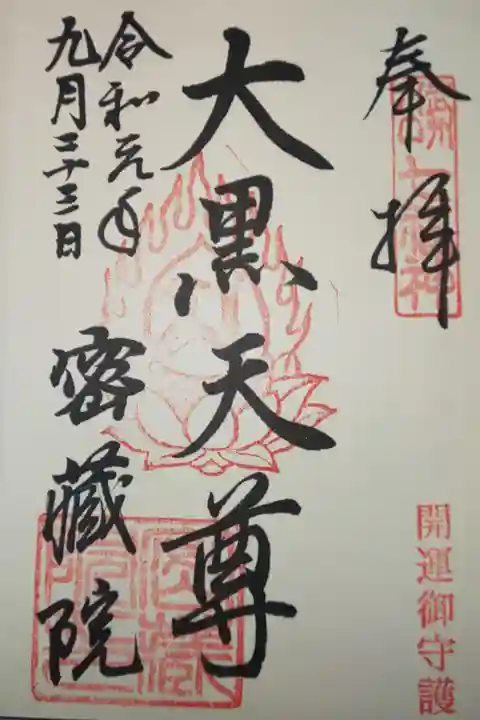 奉拝
開運御守護
大黒天尊
密蔵院
令和元年
九月二十三日